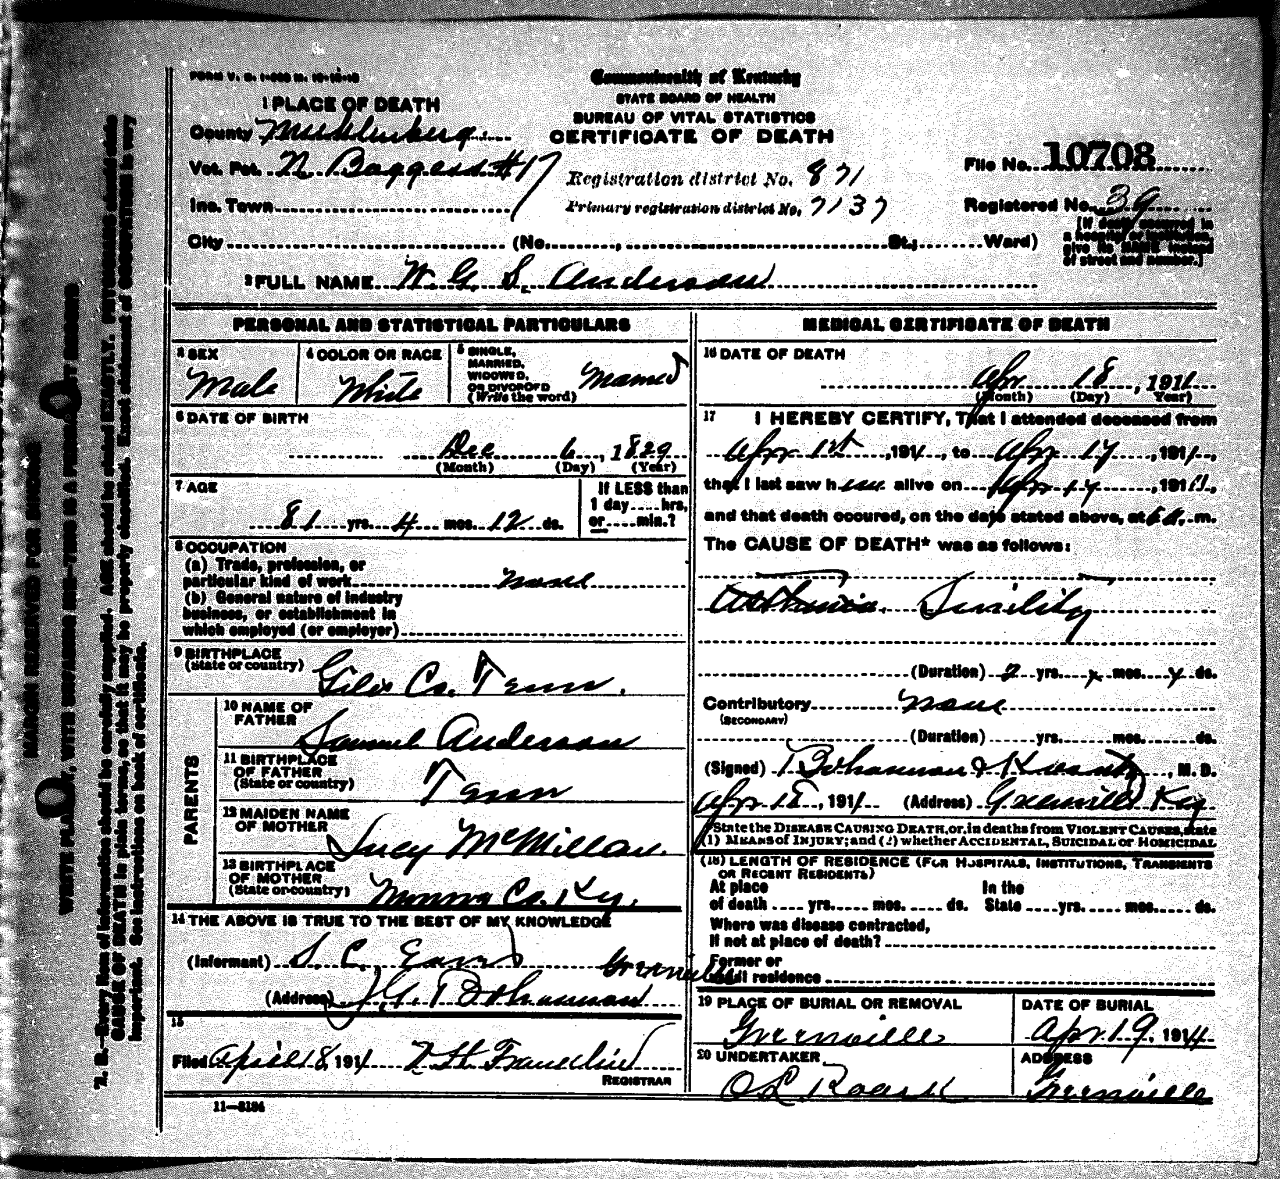 FORM V. S. 1-
Commonwealth of Kentucky
STATE BOARD OF HEALTH
BUREAU OF VITAL STATISTICS
CERTIFICATE OF DEATH
1 PLACE OF DEATH
County Muhlenberg
Vot. Pct. N Boggess #17
Inc. Town
Registration district No. 871
Primary registration district No. 7137
File No. 10708
Registered No. 39
City (No. , St.; Ward)
[If death occurred in
a hospital or institution,
give its NAME instead
of street and number.]
2 FULL NAME W. G. S. Anderson
PERSONAL AND STATISTICAL PARTICULARS
3 SEX
Male
4 COLOR OR RACE
White
5 SINGLE,
MARRIED,
WIDOWED,
OR DIVORCED
(Write the word)
Married
6 DATE OF BIRTH
Dec 6, 1829
(Month) (Day) (Year)
7 AGE
81 yrs. 4 mos. 12 ds.
If LESS than
1 day .... hrs.
or .... min.?
8 OCCUPATION
(a) Trade, profession, or
particular kind of work none
(b) General nature of industry
business, or establishment in
which employed (or employer)
9 BIRTHPLACE
(State or country) Giles Co. Tenn.
PARENTS
10 NAME OF
FATHER
Samuel Anderson
11 BIRTHPLACE
OF FATHER
(State or country) Tenn
12 MAIDEN NAME
OF MOTHER
Lucy McMillan.
13 BIRTHPLACE
OF MOTHER
(State or country) Co. Ky.
14 THE ABOVE IS TRUE TO THE BEST OF MY KNOWLEDGE
(Informant) S. C. Eaves
(Address) J. G. Bohannon Greenville
15
Filed April 18, 1911 Franklin
REGISTRAR
11-8184
MEDICAL CERTIFICATE OF DEATH
16 DATE OF DEATH
Apr 18, 1911
(Month) (Day) (Year)
17 I HEREBY CERTIFY, That I attended deceased from
Apr 1st, 1911, to Apr 17, 1911,
that I last saw him alive on Apr 17, 1911,
and that death occured, on the date stated above, at 6 a. m.
The CAUSE OF DEATH* was as follows:
Asthenia. Senility
(Duration) 2 yrs. x mos. x ds.
Contributory none
(SECONDARY)
(Duration) yrs. mos. ds.
(Signed) Bohannon & , M. D.
Apr 18, 1911 (Address) Greenville Ky
*State the DISEASE CAUSING DEATH, or, in deaths from VIOLENT CAUSES, state
(1) MEANS OF INJURY; and (2) whether ACCIDENTAL, SUICIDAL or HOMICIDAL
(18) LENGTH OF RESIDENCE (FOR HOSPITALS, INSTITUTIONS, TRANSIENTS
OR RECENT RESIDENTS)
At place
of death .... yrs. .... mos. .... ds.
In the
State .... yrs. .... mos. .... ds.
Where was disease contracted,
If not at place of death?
Former or
usual residence
19 PLACE OF BURIAL OR REMOVAL
Greenville
DATE OF BURIAL
Apr. 19, 1911
20 UNDERTAKER
O L Roark
ADDRESS
Greenville
MARGIN RESERVED FOR BINDING
WRITE PLAINLY, WITH UNFADING INK—THIS IS A PERMANENT RECORD
N. B.—Every item of information should be carefully supplied. AGE should be stated EXACTLY. PHYSICIANS should state
CAUSE OF DEATH in plain terms, so that it may be properly classified. Exact statement of OCCUPATION is very
important. See instructions on back of certificate.